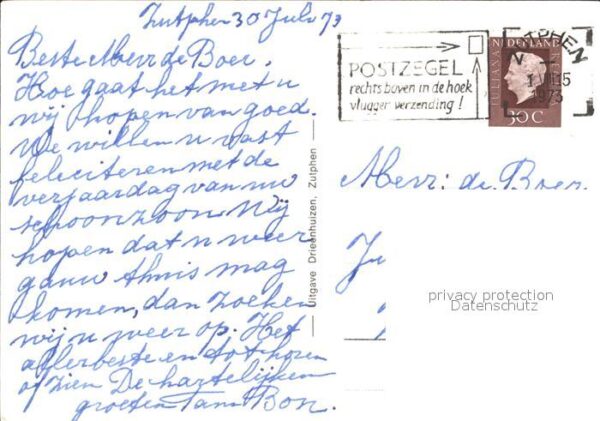 Zutphen 30 Juli 73
Beste Mevr de Boer.
Hoe gaat het met u
wij hopen van goed.
We willen u vast
feliciteren met de
verjaardag van uw
schoonzoon Wij
hopen dat u weer
gauw thuis mag
komen, dan zoeken
wij u weer op. Het
allerbeste en tot horen
of zien De hartelijken
groeten Bon.
Uitgave Drieenhuizen, Zutphen
POSTZEGEL
rechts boven in de hoek
vlugger verzending!
NEDERLAND
JULIANA
30 C
ZUTPHEN
1973
Mevr: de Boer.
Ju
privacy protection
Datenschutz